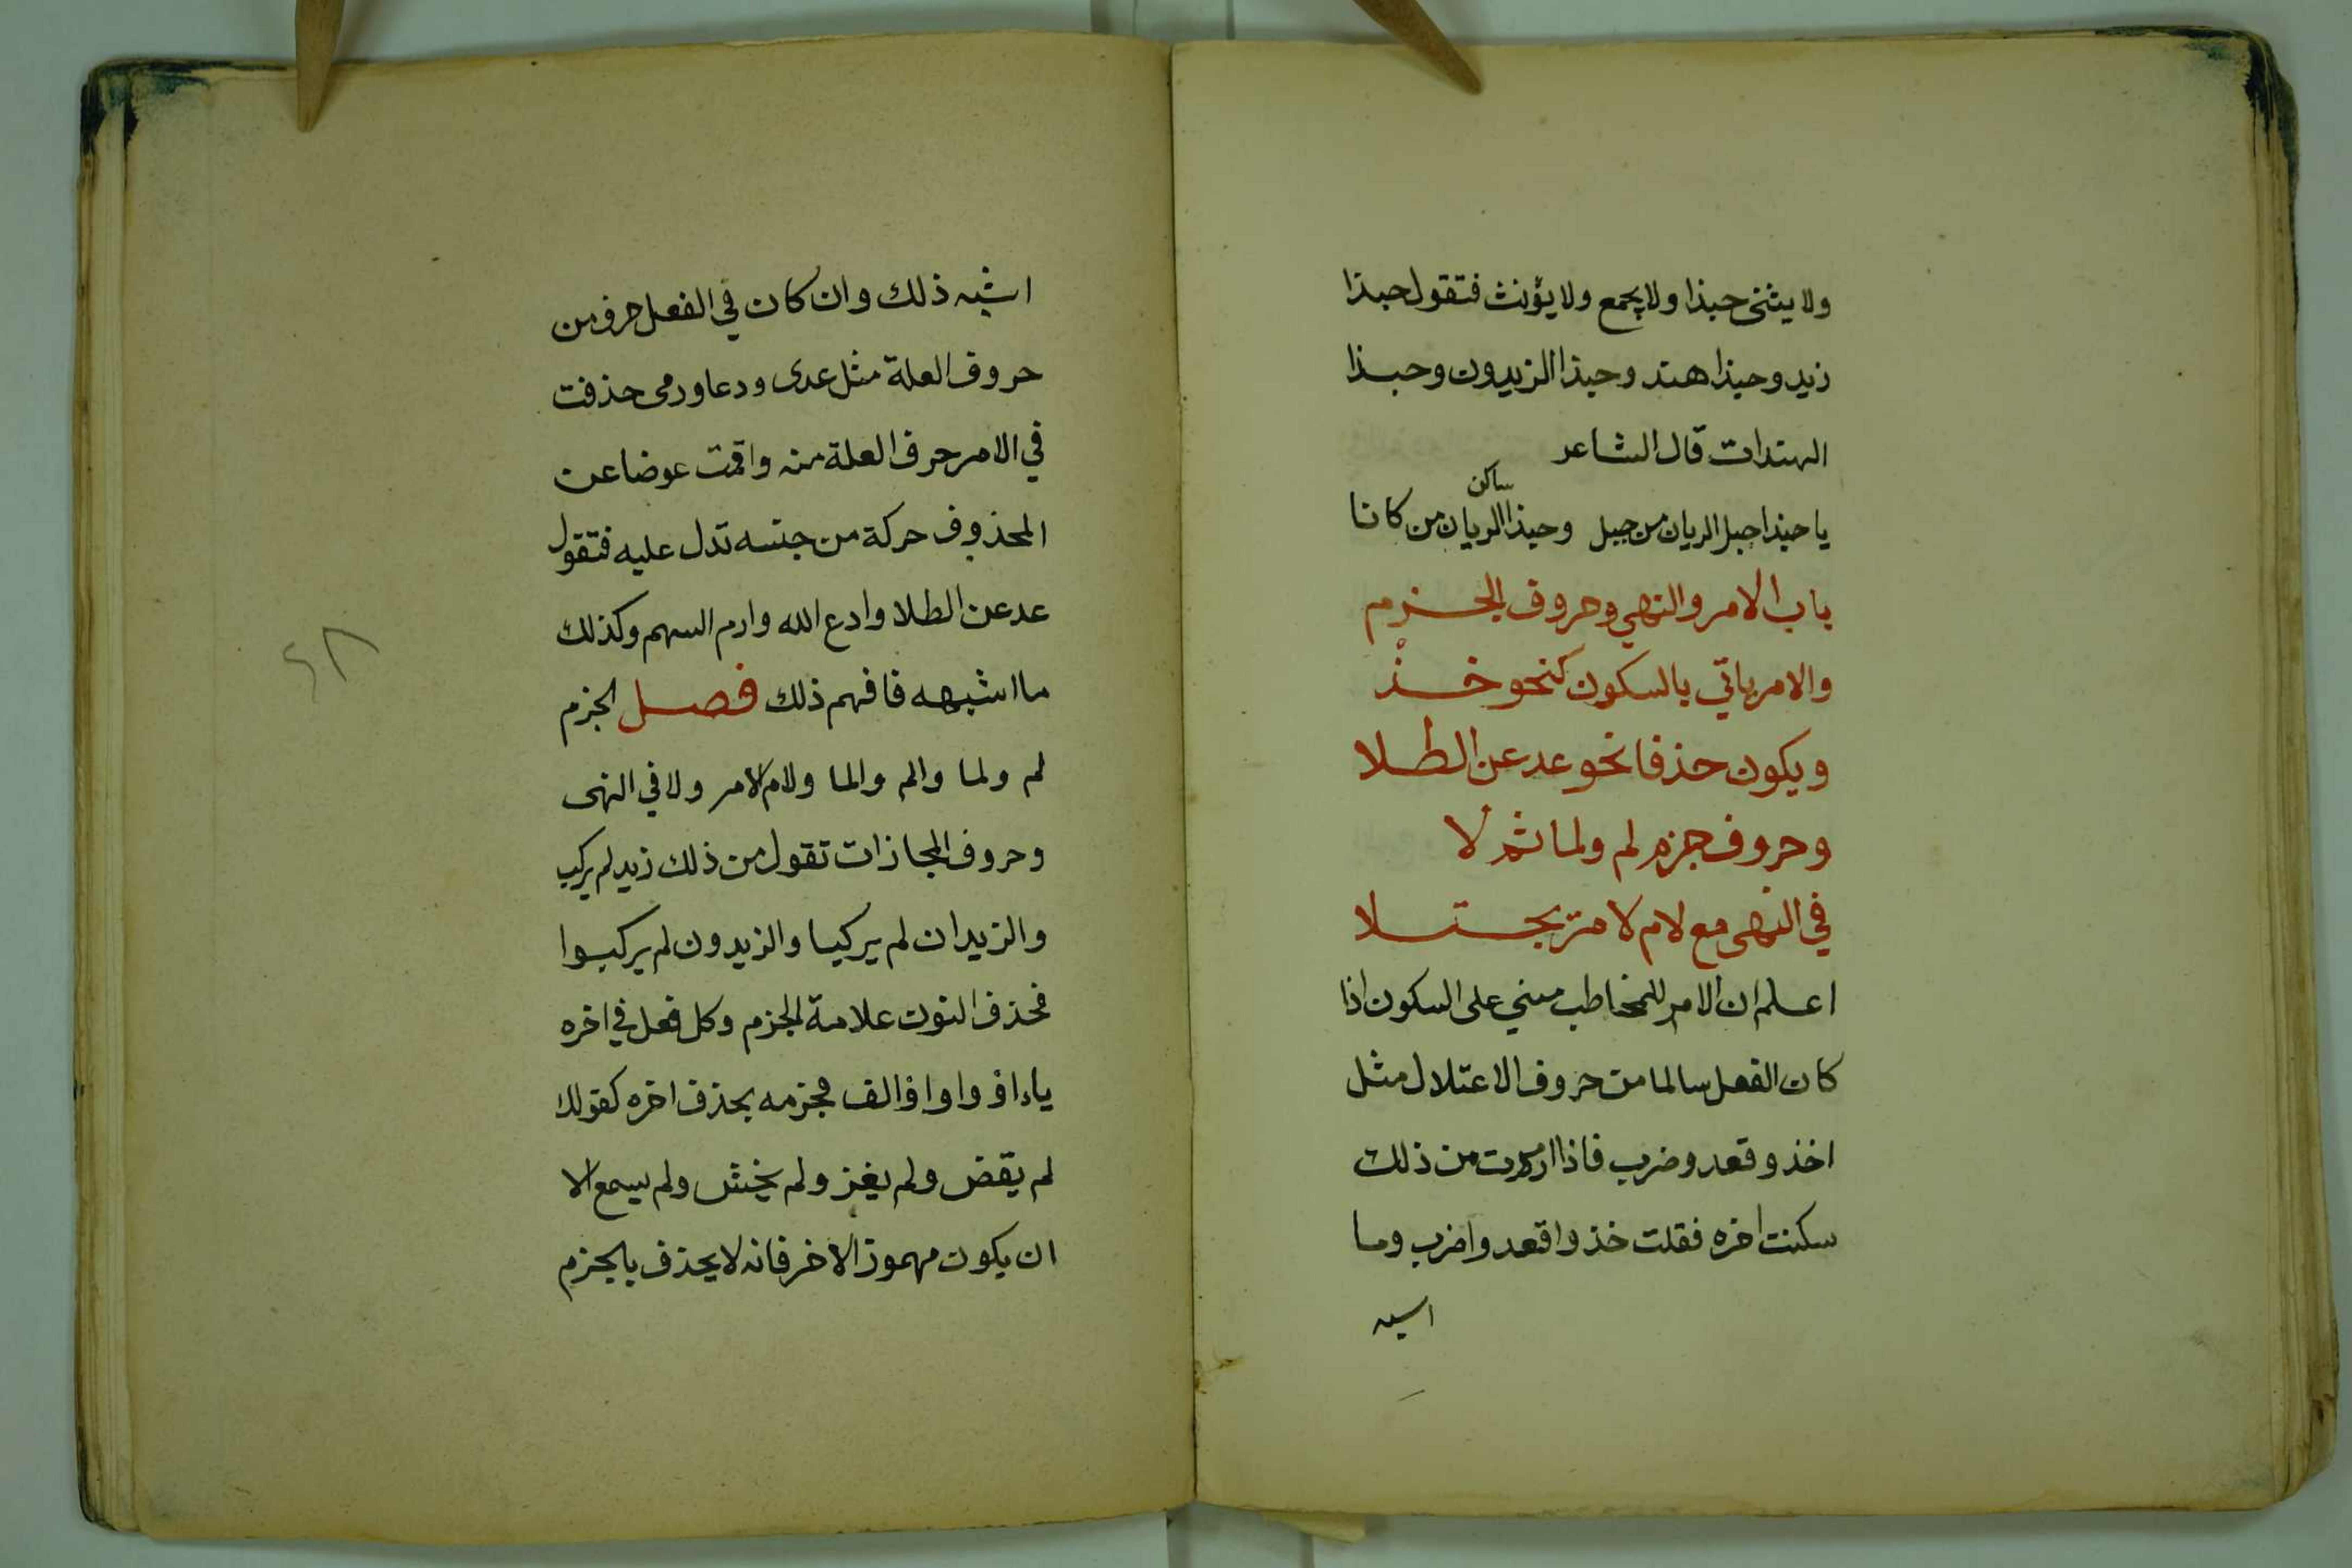 ولا يثنى حبذا ولا يجمع ولا يؤنث فتقول حبذا
زيد وحبذا هند وحبذا الزيدون وحبذا
الهندات قال الشاعر
ساكن
يا حبذا جبل الريان من جبل وحبذا الريان من كانا
باب الامر والنهي وحروف الجزم
والامر ياتي بالسكون كنحو خذ
ويكون حذفا نحو عد عن الطلا
وحروف جزم لم ولما ثم لا
في النهى مع لام لامر تجتلا
اعلم ان الامر للمخاطب مبني على السكون اذا
كان الفعل سالما من حروف الاعتلال مثل
اخذ وقعد وضرب فاذا امرت من ذلك
سكنت اخره فقلت خذ واقعد واضرب وما
اشبه
اشبه ذلك وان كان في الفعل حرف من
حروف العلة مثل عدى ودعا ورمى حذفت
في الامر حرف العلة منه واقمت عوضا عن
المحذوف حركة من جنسه تدل عليه فتقول
عد عن الطلا وادع الله وارم السهم وكذلك
ما اشبهه فافهم ذلك فصل الجزم
لم ولما والم والما ولام الامر ولا في النهى
وحروف المجازات تقول من ذلك زيد لم يركب
والزيدان لم يركبا والزيدون لم يركبوا
فحذف النون علامة الجزم وكل فعل في اخره
ياء او واو او الف فجزمه بحذف اخره كقولك
لم يقض ولم يغز ولم يخش ولم يسمع الا
ان يكون مهموز الاخر فانه لا يحذف بالجزم
٤٨